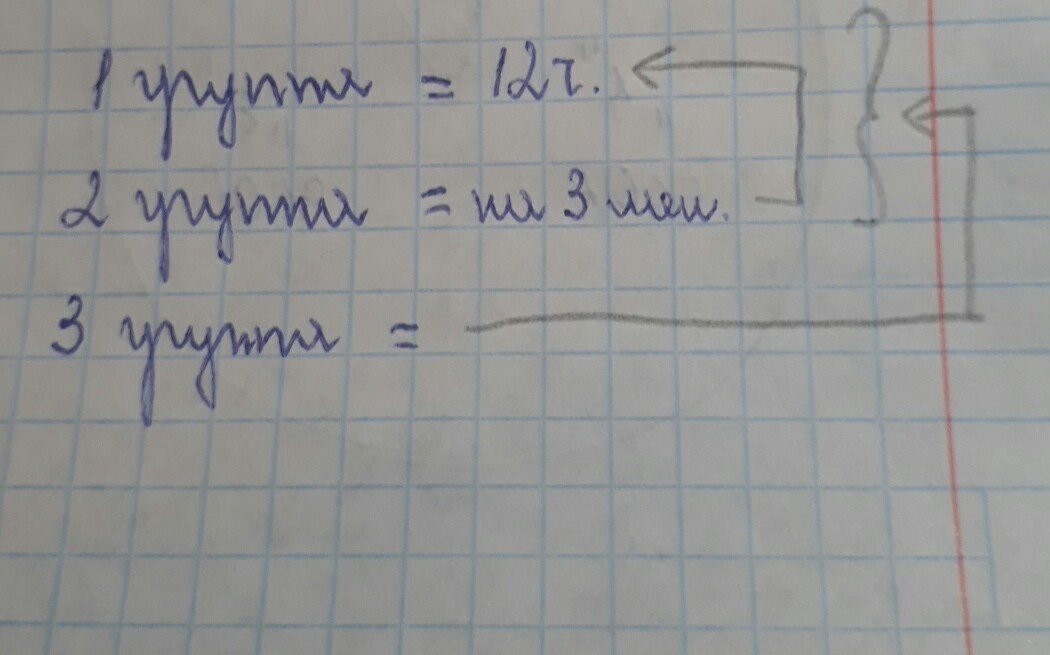 1 группа = 12 ч.
2 группа = на 3 мен.
3 группа =